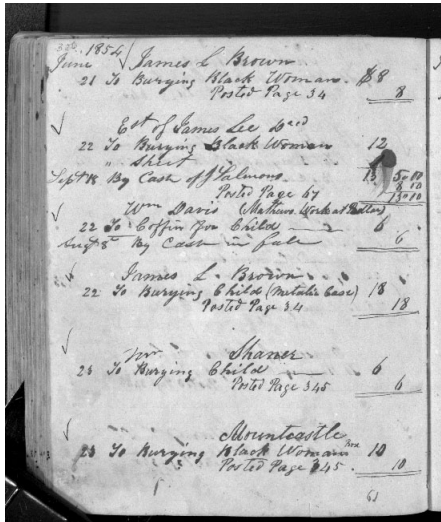 1854 James L Brown
June
21 To Burying Black Woman. $8
Posted Page 34 8
Est of James Lee Decd
22 To Burying Black Woman 12
" Sheet
Sept 18 By Cash of J Salmons. 13 5.00
8 00
Posted Page 67 13.00
Wm Davis (Mathews Work at
22 To Coffin for Child 6
Augt 8th By Cash in full 6
James L. Brown
22 To Burying Child (Metalic Case) 18
Posted Page 34 18
Mr Shaner
23 To Burying Child 6
Posted Page 345 6
Mountcastle
23 To Burying Black Woman 10
Posted Page 345 10